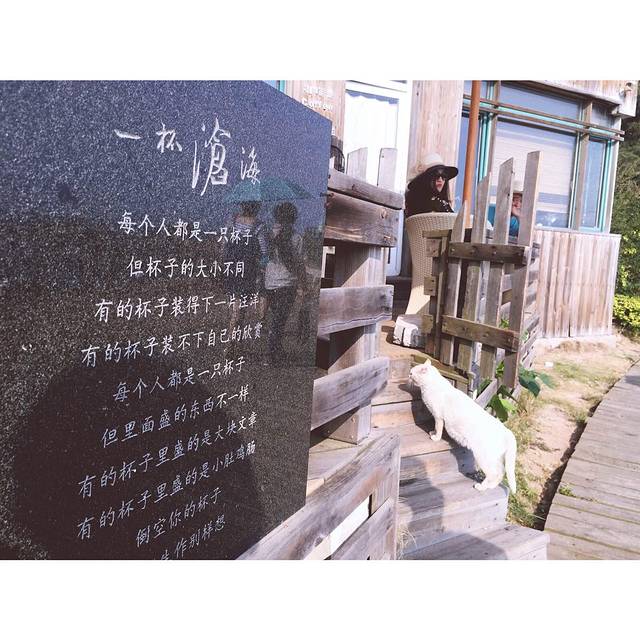 一杯滄海
每个人都是一只杯子
但杯子的大小不同
有的杯子装得下一片汪洋
有的杯子装不下自己的欣赏
每个人都是一只杯子
但里面盛的东西不一样
有的杯子里盛的是大块文章
有的杯子里盛的是小肚鸡肠
倒空你的杯子
作别样想